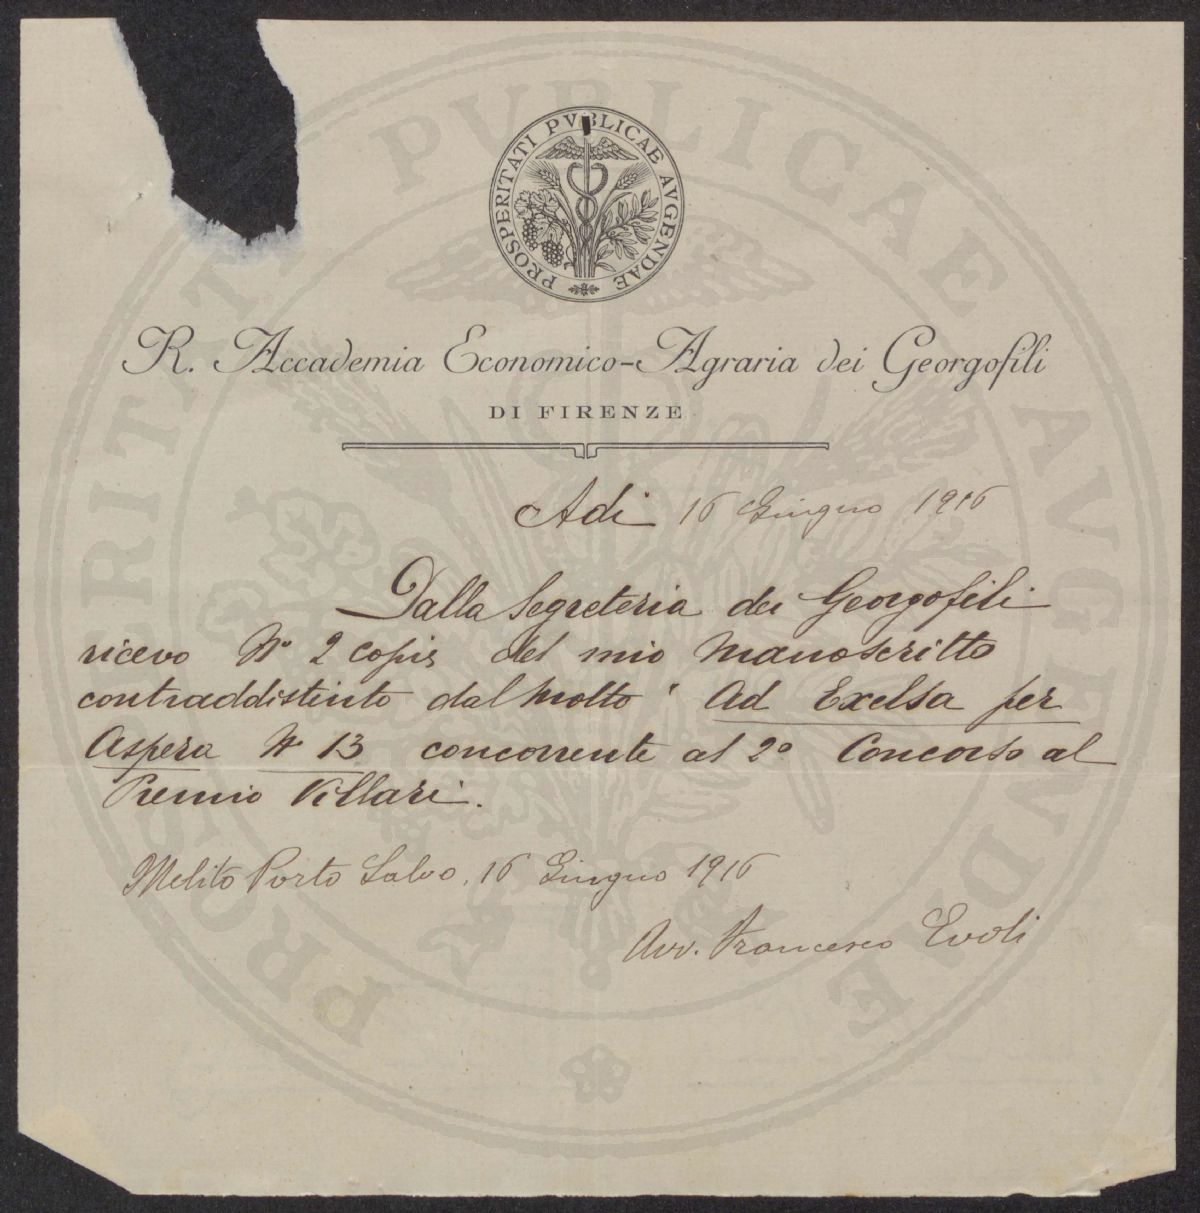 PROSPERITATI PVBLICAE AVGENDAE
R. Accademia Economico-Agraria dei Georgofili
DI FIRENZE
Adi 16 Giugno 1916
Dalla Segreteria dei Georgofili
ricevo N° 2 copie del mio manoscritto
contraddistinto dal motto " Ad Exelsa per
Aspera N° 13 concorrente al 2° Concorso al
Premio Villari.
Melito Porto Salvo, 16 Giugno 1916
Avv. Francesco Evoli
PROSPERITATI PVBLICAE AVGENDAE